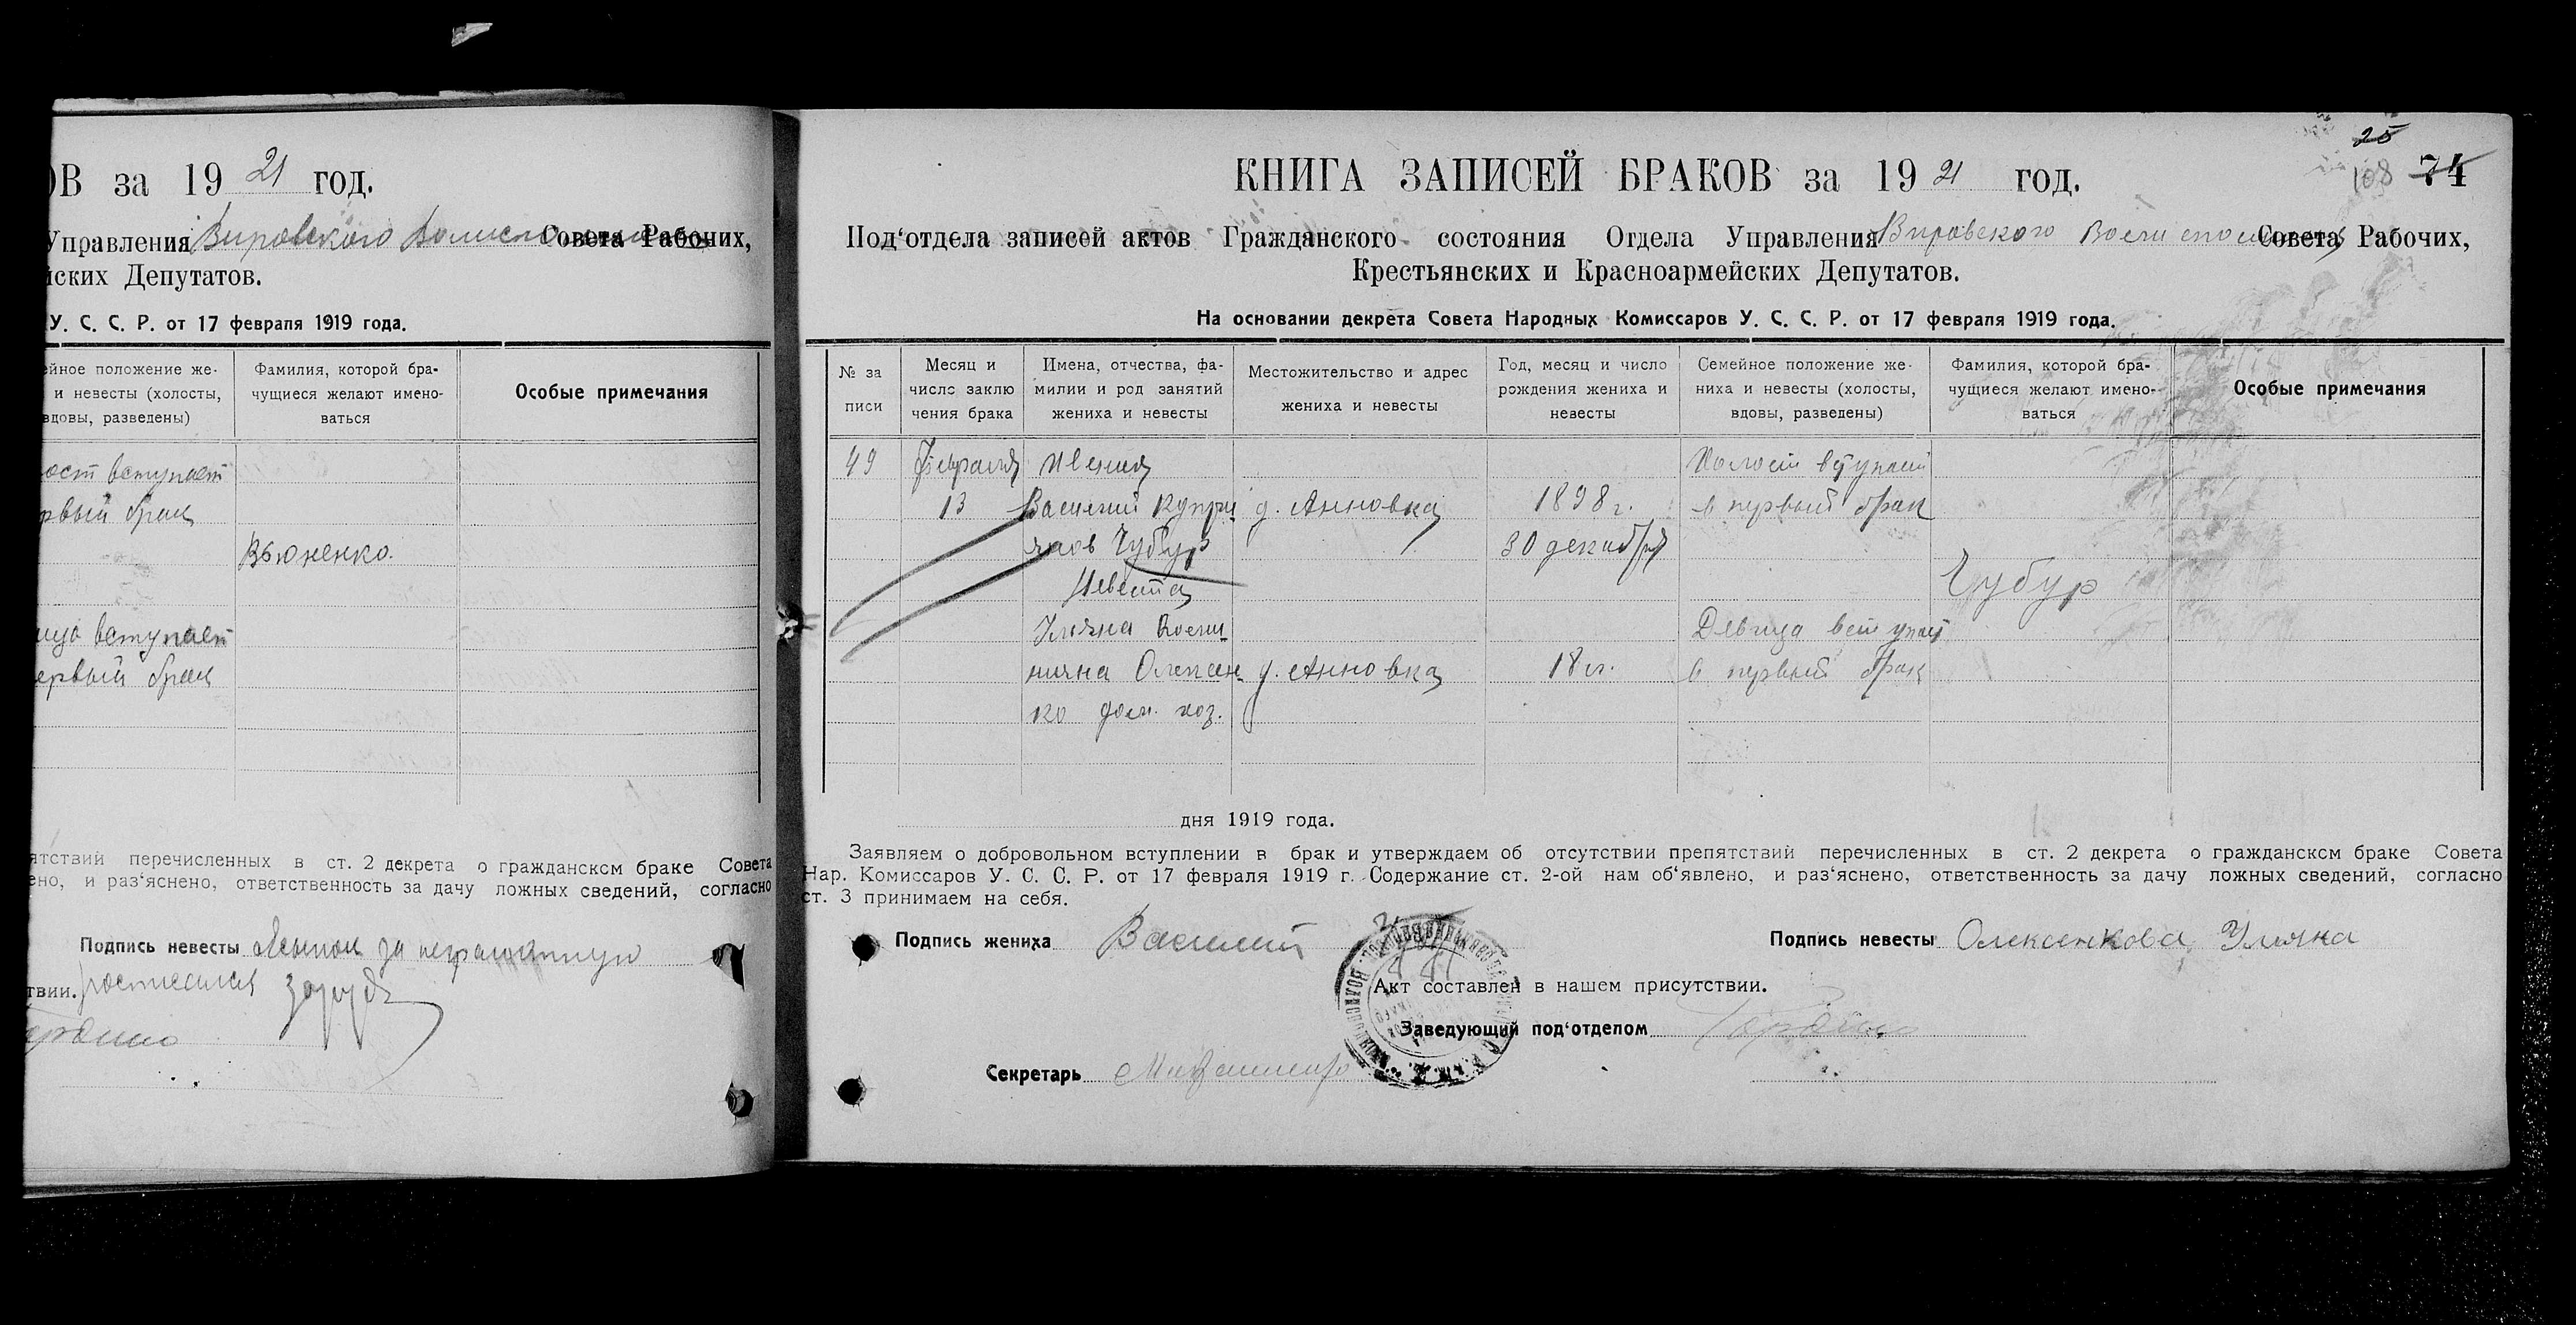 ОВ за 19 21 год.
Управления Вировского Совета Рабочих,
йских Депутатов.
У. С. С. Р. от 17 февраля 1919 года.
ейное положение же-
и невесты (холосты,
вдовы, разведены)
Фамилия, которой бра-
чущиеся желают имено-
ваться
Особые примечания
ост вступает
ервый брак
Вьюненко.
ица вступает
ервый брак
ятствий перечисленных в ст. 2 декрета о гражданском браке Совета
ено, и раз‘яснено, ответственность за дачу ложных сведений, согласно
Подпись невесты за неграмотную
твии. росписался
25
108 74
КНИГА ЗАПИСЕЙ БРАКОВ за 19 21 год.
Под‘отдела записей актов Гражданского состояния Отдела Управления Вировского Совета Рабочих,
Крестьянских и Красноармейских Депутатов.
На основании декрета Совета Народных Комиссаров У. С. С. Р. от 17 февраля 1919 года.
№ за
писи
Месяц и
число заклю
чения брака
Имена, отчества, фа-
милии и род занятий
жениха и невесты
Местожительство и адрес
жениха и невесты
Год, месяц и число
рождения жениха и
невесты
Семейное положение же-
ниха и невесты (холосты,
вдовы, разведены)
Фамилия, которой бра-
чущиеся желают имено-
ваться
Особые примечания
49 Февраля Жених Холост вступает
13 Василий Купри д. Анновка 1898 г. в первый брак
янов Чубур 30 декабря
Невеста Чубур
Ульяна Девица вступает
Олексен- д. Анновка 18 л. в первый брак
ко дом. хоз.
дня 1919 года.
Заявляем о добровольном вступлении в брак и утверждаем об отсутствии препятствий перечисленных в ст. 2 декрета о гражданском браке Совета
Нар. Комиссаров У. С. С. Р. от 17 февраля 1919 г. Содержание ст. 2-ой нам об‘явлено, и раз‘яснено, ответственность за дачу ложных сведений, согласно
ст. 3 принимаем на себя.
Подпись жениха Василий Подпись невесты Олексенкова Уляна
Акт составлен в нашем присутствии.
Заведующий под‘отделом
Секретарь